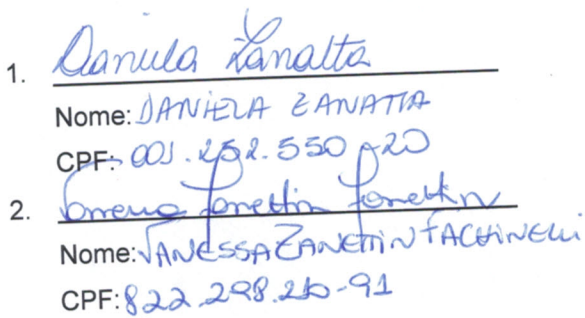 1. Daniela Zanatta
Nome: DANIELA ZANATTA
CPF: 001.252.550-20
2. Vanessa Zanettin
Nome: VANESSA ZANETTIN FACHINELLI
CPF: 822.298.210-91